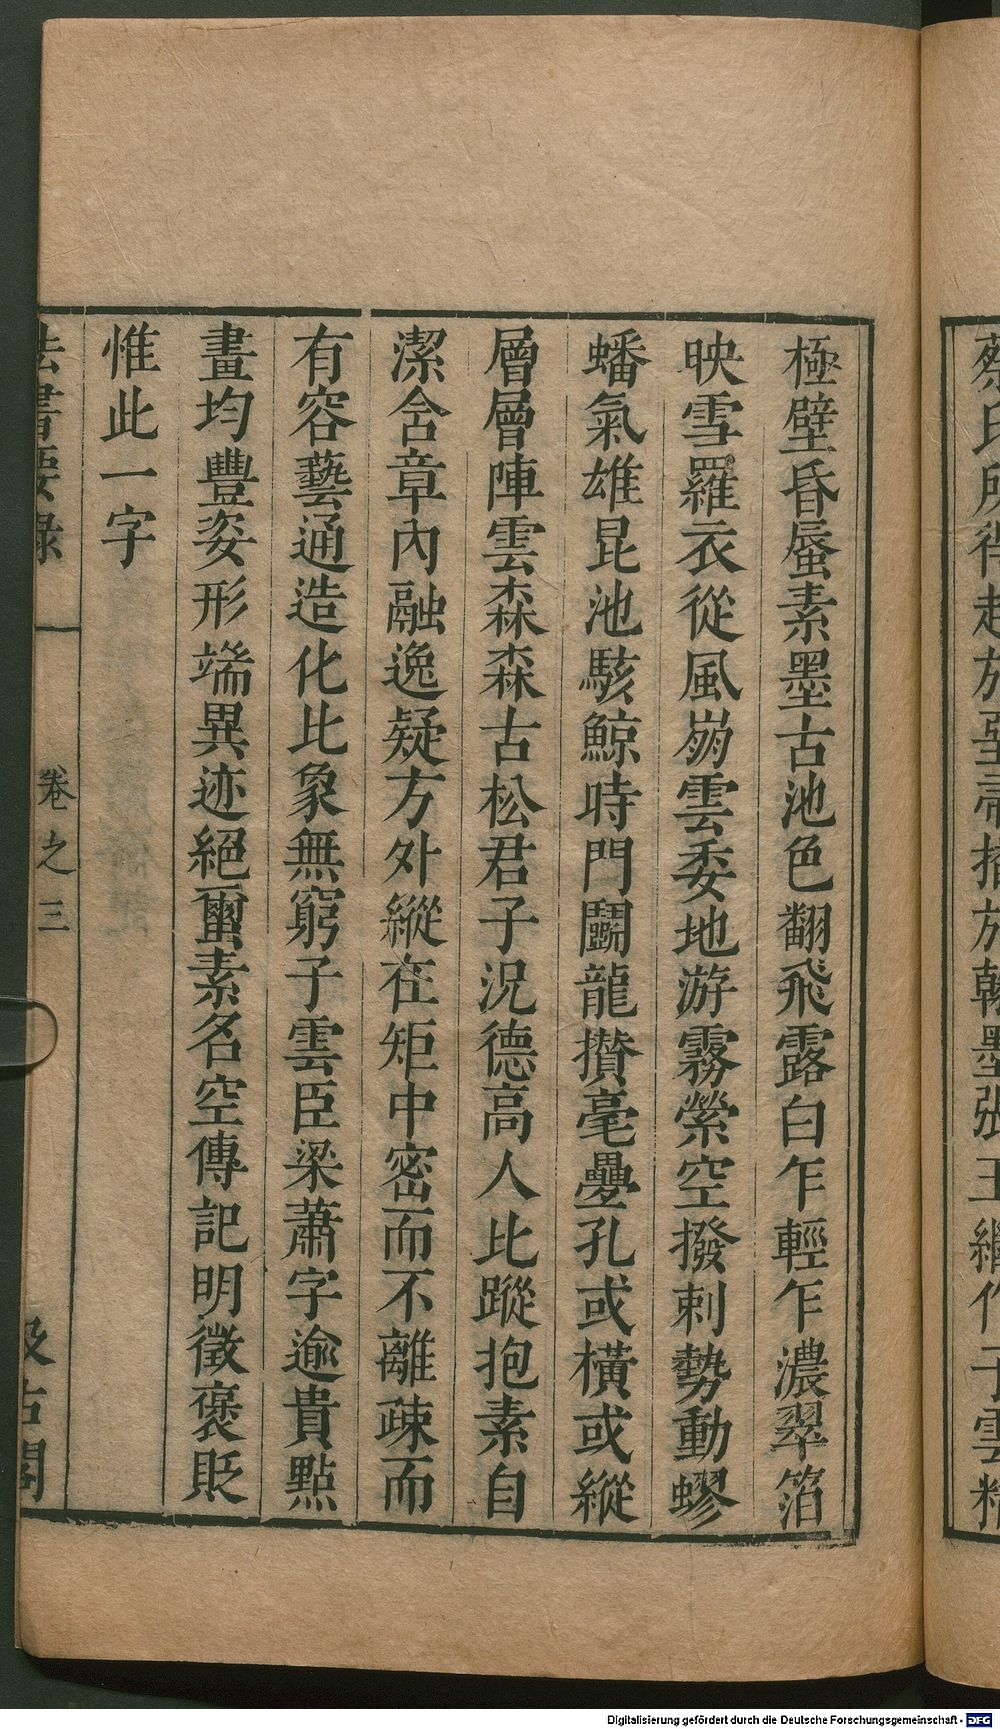 蔡氏所得起於至壺揎於翰墨張王繼作子雲精
極壁昏蜃素墨古池色翻飛露白乍輕乍濃翠箔
映雪羅衣從風崩雲委地游霧縈空撥剌勢動蟉
蟠氣雄昆池駭鯨時門鬭龍攅毫疊孔或橫或縱
層層陣雲森森古松君子況德高人比蹤抱素自
潔含章內融逸疑方外縱在矩中密而不離疎而
有容藝通造化比象無窮子雲臣梁蕭字逾貴點
畫均豐姿形端異迹絕𤫊素名空傳記明徵褒貶
惟此一字
法書要錄
卷之三
汲古閣
Digitalisierung gefördert durch die Deutsche Forschungsgemeinschaft - DFG